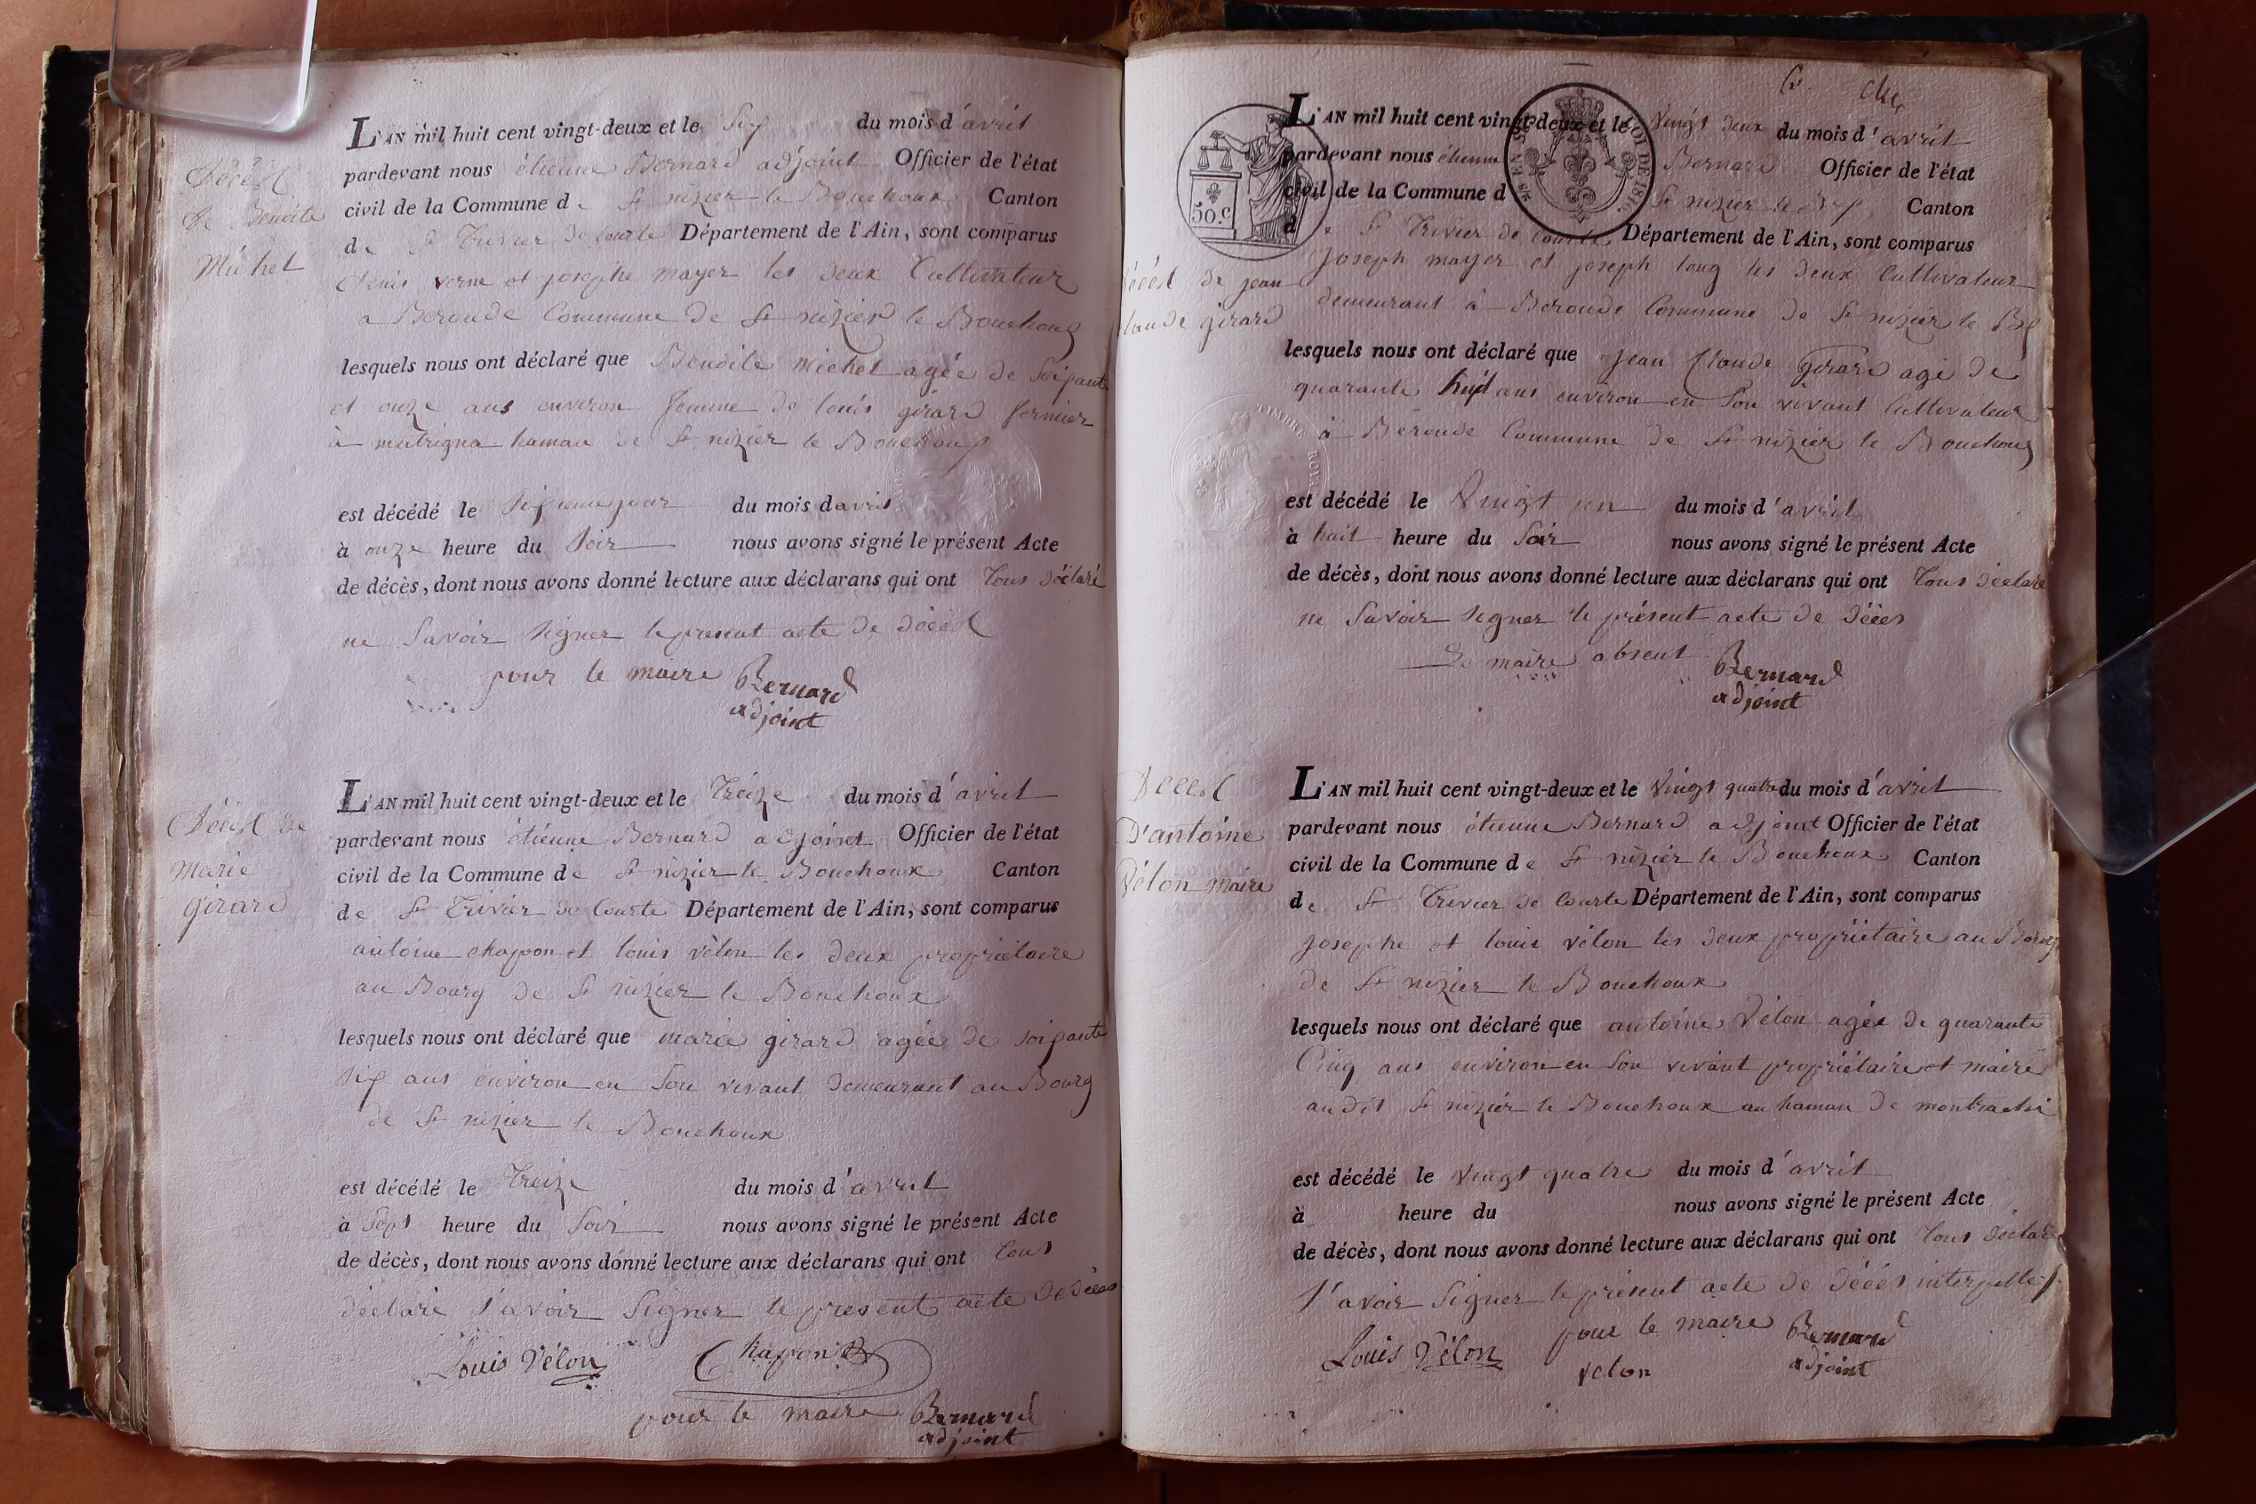 Décès
de Benoite
Michel
L'AN mil huit cent vingt-deux et le six du mois d'avril
pardevant nous étienne Bernard adjoint Officier de l'état
civil de la Commune de St nizier le Bouchoux Canton
de St Trivier de Courte Département de l'Ain, sont comparus
denis verne et josephe mayer les deux Cultivateur
a Beroude Commune de St nizier le Bouchoux
lesquels nous ont déclaré que Benoite michel agée de soixante
et onze ans environ femme de louis girard fermier
à hamau de St nizier le Bouchoux
est décédé le jour du mois davril
à onze heure du soir nous avons signé le présent Acte
de décès, dont nous avons donné lecture aux déclarans qui ont tous déclaré
ne savoir signer le present acte de décès
pour le maire Bernard
adjoint
Décès de
Marie
girard
L'AN mil huit cent vingt-deux et le Treize du mois d'avril
pardevant nous étienne Bernard adjoint Officier de l'état
civil de la Commune de St nizier le Bouchoux Canton
de St Trivier de Courte Département de l'Ain, sont comparus
antoine chapon et louis vélon les deux propriétaire
au Bourg de St nizier le Bouchoux
lesquels nous ont déclaré que marie girard agée de soixante
six ans environ en son vivant demeurant au Bourg
de St nizier le Bouchoux
est décédé le treize du mois d'avril
à sept heure du soir nous avons signé le présent Acte
de décès, dont nous avons donné lecture aux déclarans qui ont tous
déclaré s'avoir signer le present acte de décès
Louis Vélon Chapon
pour le maire Bernard
adjoint
50.c
TIMBRE ROYAL
LOI DE 1816
L'AN mil huit cent vingt-deux et le vingt deux du mois d'avril
pardevant nous étienne Bernard Officier de l'état
civil de la Commune d St nizier le Canton
de St Trivier de Courte Département de l'Ain, sont comparus
joseph mayer et joseph long les deux Cultivateur
décès de jean
claude girard
demeurant à Beroude Commune de St nizier le
lesquels nous ont déclaré que jean Claude girard agé de
quarante huit ans environ en son vivant Cultivateur
à Béroude Commune de St nizier le Bouchoux
est décédé le Vingt un du mois d'avril
à huit heure du soir nous avons signé le présent Acte
de décès, dont nous avons donné lecture aux déclarans qui ont tous déclaré
ne savoir signer le présent acte de décès
le maire absent Bernard
adjoint
Décès
D'antoine
Vélon maire
L'AN mil huit cent vingt-deux et le vingt quatre du mois d'avril
pardevant nous étienne Bernard adjoint Officier de l'état
civil de la Commune de St nizier le Bouchoux Canton
de St Trivier de Courte Département de l'Ain, sont comparus
josephe et louis vélon les deux propriétaire au Bourg
de St nizier le Bouchoux
lesquels nous ont déclaré que antoine Vélon agée de quarante
Cinq ans environ en son vivant propriétaire et maire
audit St nizier le Bouchoux au hamau de
est décédé le vingt quatre du mois d'avril
à heure du nous avons signé le présent Acte
de décès, dont nous avons donné lecture aux déclarans qui ont tous déclaré
s'avoir signer le présent acte de décès
Louis Vélon pour le maire Bernard
velon adjoint